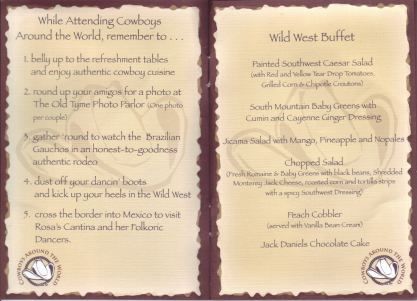 While Attending Cowboys
Around the World, remember to . . .
1. belly up to the refreshment tables
and enjoy authentic cowboy cuisine
2. round up your amigos for a photo at
The Old Tyme Photo Parlor (One photo
per couple)
3. gather 'round to watch the Brazilian
Gauchos in an honest-to-goodness
authentic rodeo
4. dust off your dancin' boots
and kick up your heels in the Wild West
5. cross the border into Mexico to visit
Rosa's Cantina and her Folkoric
Dancers.
COWBOYS AROUND THE WORLD
Wild West Buffet
Painted Southwest Caesar Salad
(with Red and Yellow Tear Drop Tomatoes,
Grilled Corn & Chipotle Croutons)
South Mountain Baby Greens with
Cumin and Cayenne Ginger Dressing
Jicama Salad with Mango, Pineapple and Nopales
Chopped Salad
(Fresh Romaine & Baby Greens with black beans, Shredded
Monterey Jack Cheese, roasted corn and tortilla strips
with a spicy Southwest Dressing)
Peach Cobbler
(served with Vanilla Bean Cream)
Jack Daniels Chocolate Cake
COWBOYS AROUND THE WORLD